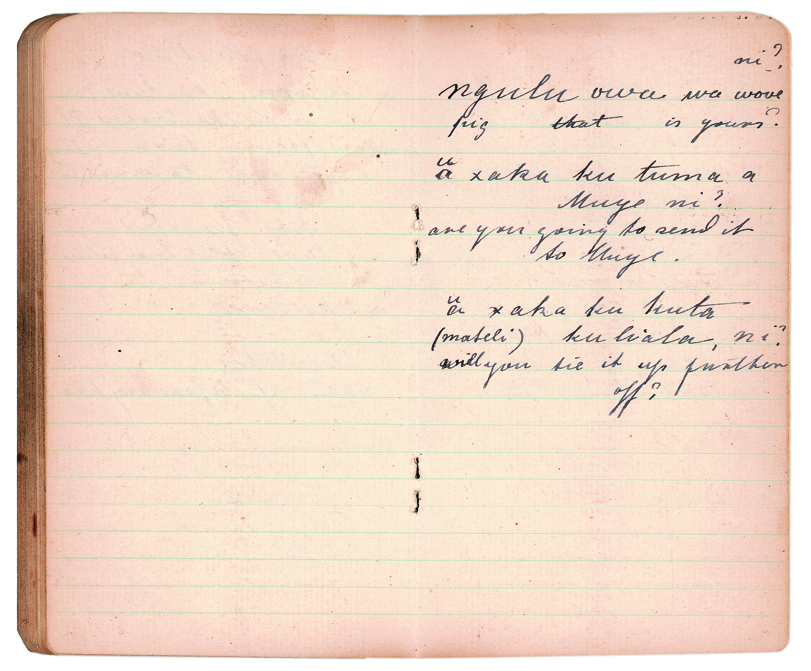 ni?
ngulu owa wa wove
pig that is yours?
ŭ
a xaka ku tuma a
Muye ni?
are you going to send it
to Muye.
ŭ
a xaka ku kuta
(mateli) ku liala, ni?
will you tie it up further
off?